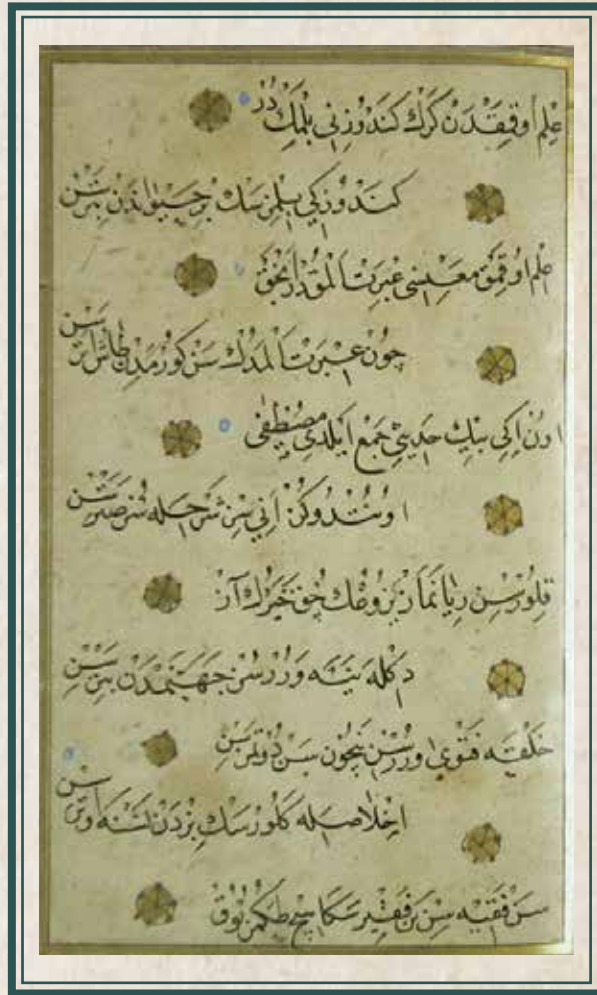 علم اوقمقدن كرك كندوزني بلمك در
كندوزكي بلمزسك بر حيواندن بترسن
علم اوقمق معنيسي عبرت المقدر انجق
چون عبرت المدك سن كورمدن طاش اترسن
اون اكي بيك حديثي جمع ايلدي مصطفى
اني سن شرحله صترسن
قلورسن ريا نماز يزوغك چق خيرك از
دكله نيته وررسن جهنمدن سن
خلقه فتوي وررسن نچون سن دوتمزسن
اخلاصله كلورسك بزدن نسنه اوترسن
سن فقيه سن بن فقير سكا هيچ طكمز يوق